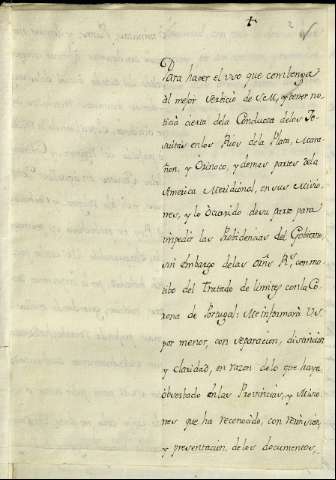 Para hacer el uso que combenga
al mejor servicio de S.M, y tener no
ticia cierta dela Conducta delos Je
suitas en los Rios dela Plata, Mara
ñon, y Orinoco, y demas partes dela
America Meridional, en sus Misio
nes, y lo Ocurrido de su parte para
impedir las Probidencias del Gobierno
sin embargo de las orns Rs, con mo
tibo del Tratado de limites con la Co
rona de Portugal: Me informará VS
por menor, con separacion, distincion
y claridad, en razon delo que haya
observado en las Provincias, y Misio
nes que ha reconocido, con remision,
y presentacion delos documentos